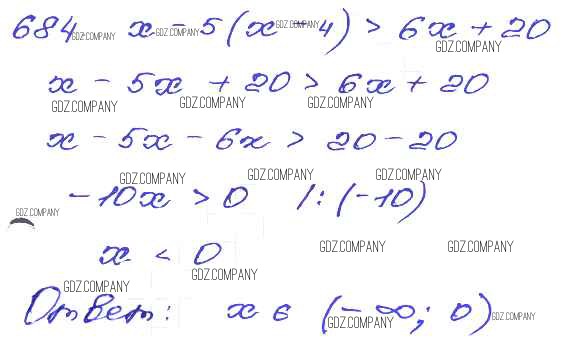 684 x - 5(x - 4) > 6x + 20
GDZ.COMPANY GDZ.COMPANY GDZ.COMPANY GDZ.COMPANY
x - 5x + 20 > 6x + 20
GDZ.COMPANY GDZ.COMPANY GDZ.COMPANY
x - 5x - 6x > 20 - 20
GDZ.COMPANY GDZ.COMPANY GDZ.COMPANY
-10x > 0 /: (-10)
GDZ.COMPANY
x < 0
GDZ.COMPANY GDZ.COMPANY GDZ.COMPANY
GDZ.COMPANY
Ответ: x ∈ (-∞; 0)
GDZ.COMPANY GDZ.COMPANY